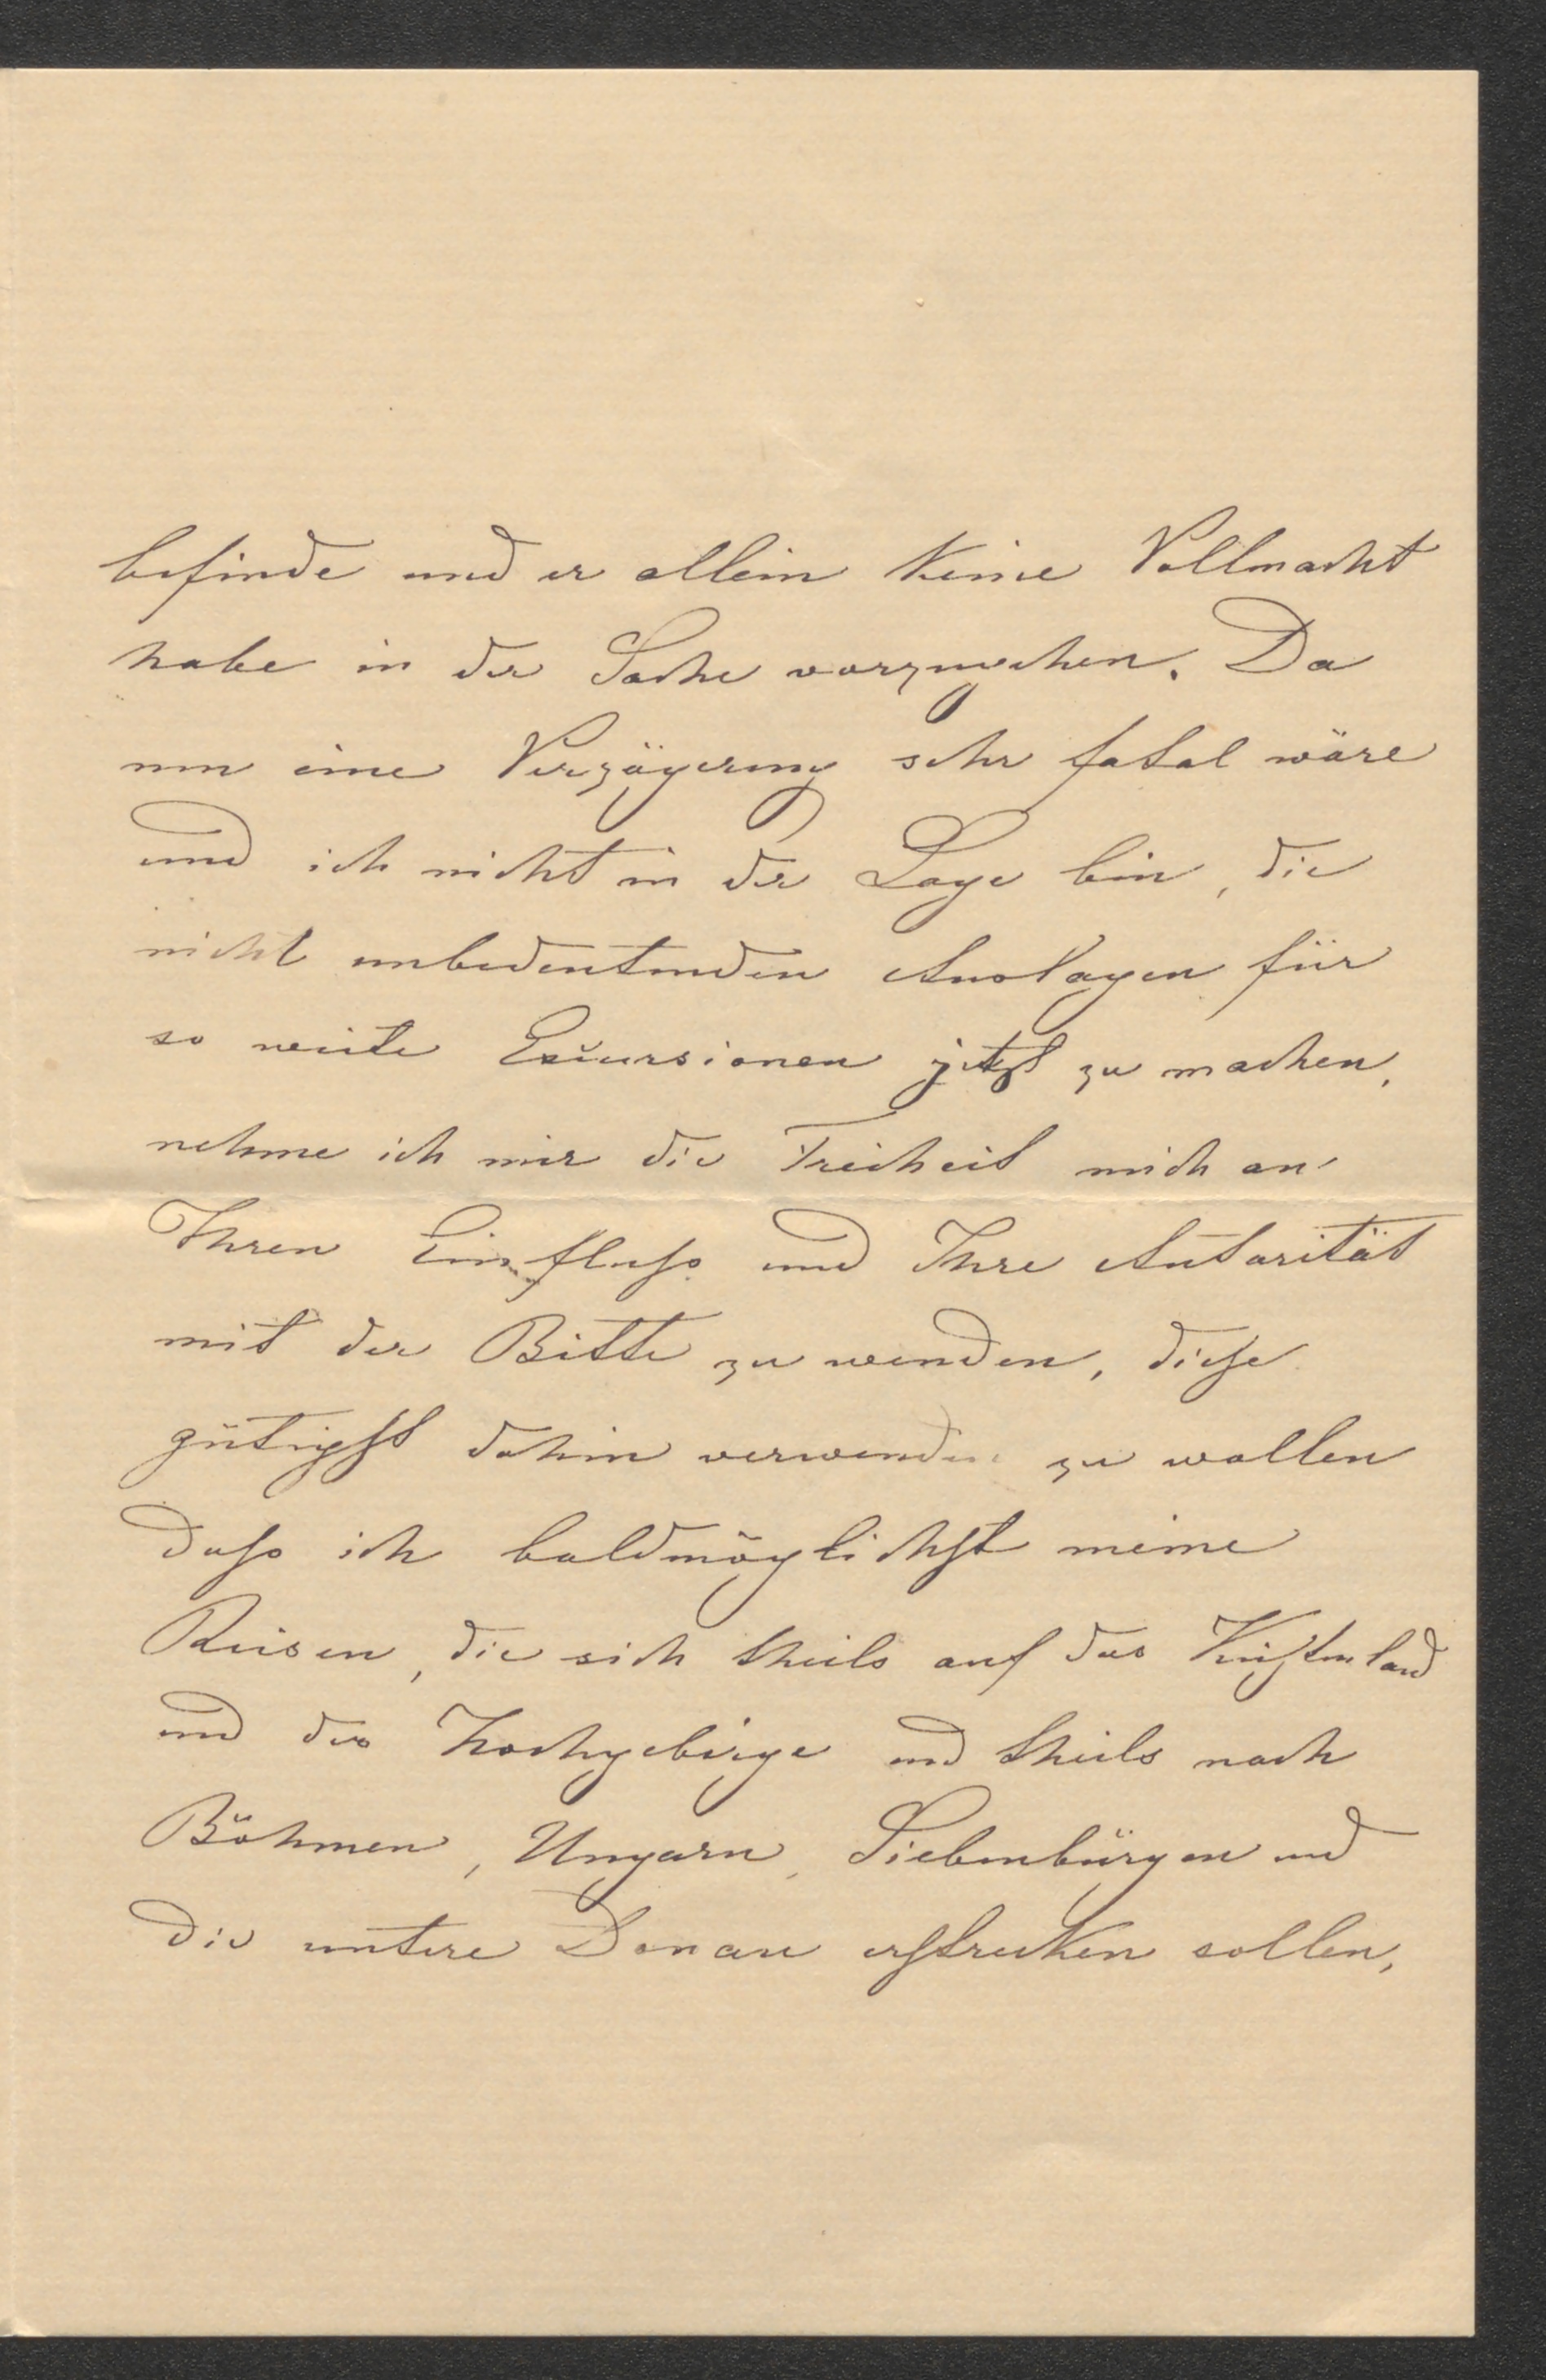 befinde und er allein keine Vollmacht
habe in der Sache vorzugehen. Da
nun eine Verzögerung sehr fatal wäre
und ich nicht in der Lage bin, die
nicht unbedeutenden Auslagen für
so weite Excursionen jetzt zu machen,
nehme ich mir die Freiheit mich an
Ihren Einfluss und Ihre Autorität
mit der Bitte zu wenden, diese
gütigst dahin verwenden zu wollen
dass ich baldmöglichst meine
Reisen, die sich theils auf das Küstenland
und das Hochgebirge und theils nach
Böhmen, Ungarn, Siebenbürgen und
die untere Donau erstrecken sollen,